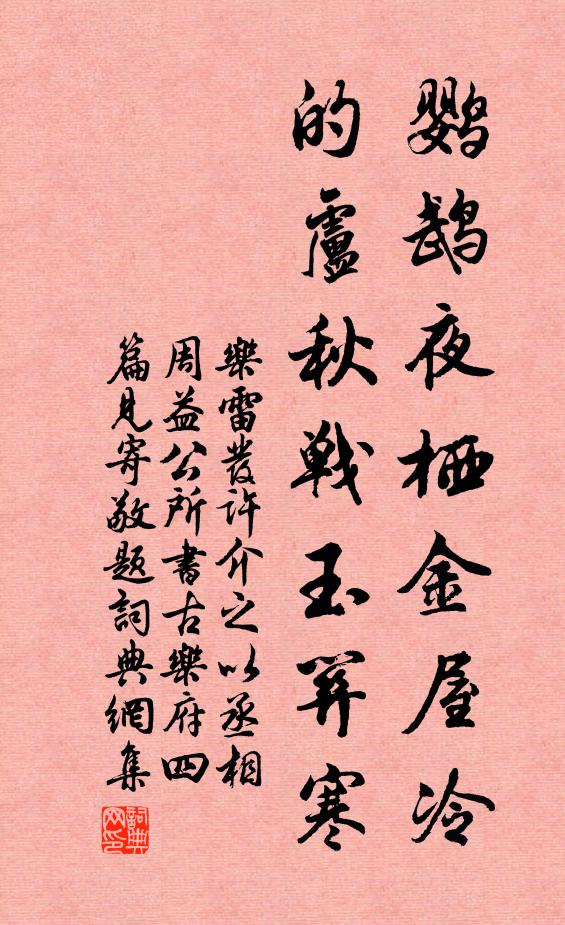 鹦鹉夜栖金屋冷
的盧秋戦玉笄寒
樂雷發許介之以丞相
周益公所書古樂府四
篇見寄敬題詞典網集
詞典
网印